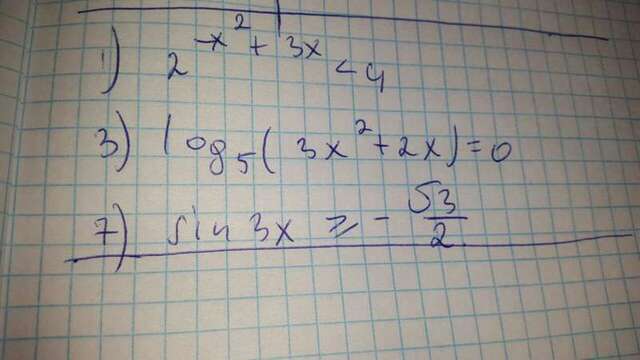 1) 2^{-x^2 + 3x} < 4
3) log_5(3x^2+2x)=0
7) sin 3x ⩾ -\frac{√3}{2}